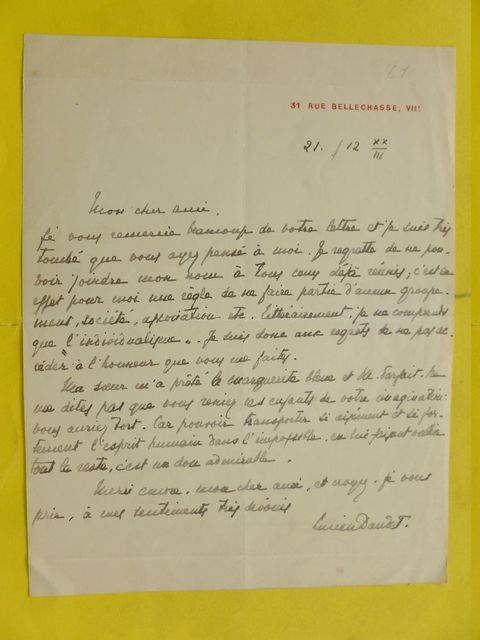 81
31 RUE BELLECHASSE, VIIe
21. / 12 XX
III
Mon cher ami,
Je vous remercie beaucoup de votre lettre et je suis très
touché que vous ayez pensé à moi. Je regrette de ne pou-
voir joindre mon nom à tous ceux déjà réunis, c'est en
effet pour moi une règle de ne faire partie d'aucun groupe-
ment, société, association etc. Littérairement, je ne comprends
que l'individualique". Je suis donc aux regrets de ne pas ac-
céder à l'honneur que vous me faites.
Ma sœur m'a prêté la marguerite bleue et M. Parfait. Ne
me dites pas que vous reniez ces enfants de votre imagination
vous auriez tort. Car pouvoir transporter si aisément et si for-
tement l'esprit humain dans l'impossible, en lui faisant oublier
tout le reste, c'est un don admirable.
Merci encore, mon cher ami, et croyez, je vous
prie, à mes sentiments très dévoués
Lucien Daudet.